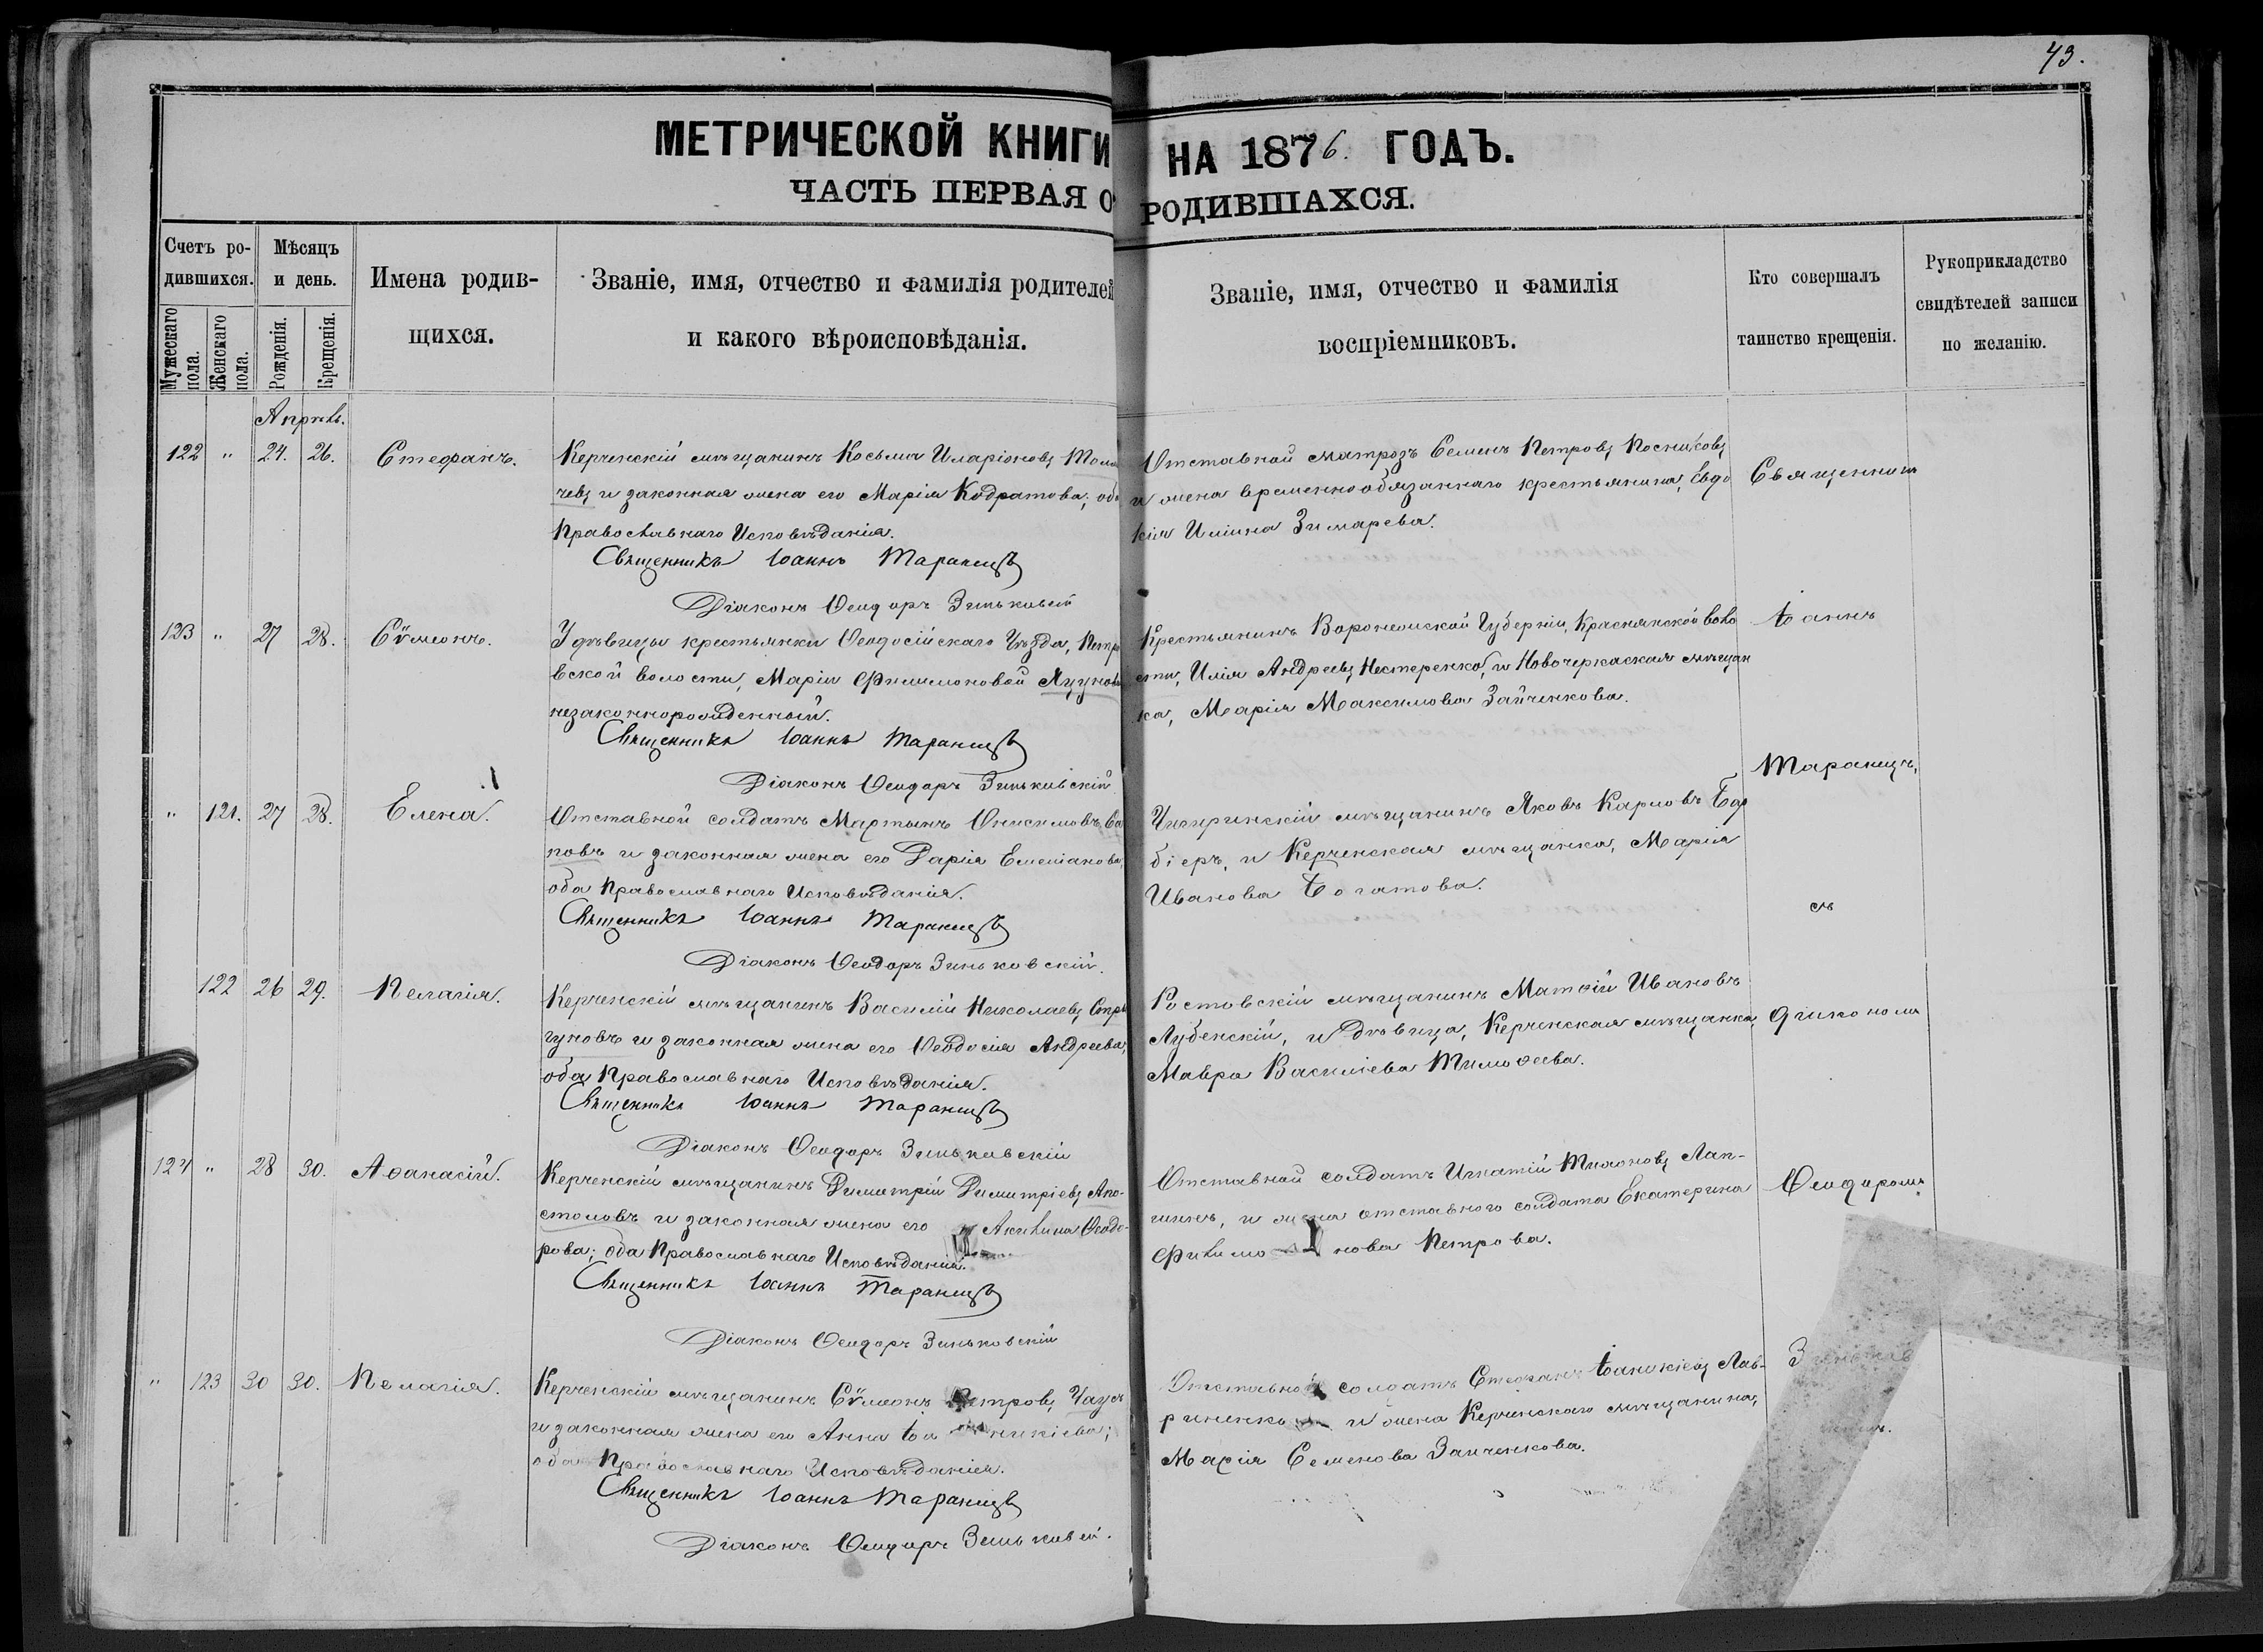 43.
МЕТРИЧЕСКОЙ КНИГИ НА 1876. ГОДЪ.
ЧАСТЬ ПЕРВАЯ О РОДИВШАХСЯ.
Счетъ ро-
дившихся.
Мужескаго пола.
Женскаго пола.
Мѣсяцъ
и день.
Рожденія.
Крещенія.
Имена родив-
щихся.
Званіе, имя, отчество и фамилія родителей
и какого вѣроисповѣданія.
Званіе, имя, отчество и фамилія
воспріемниковъ.
Кто совершалъ
таинство крещенія.
Рукоприкладство
свидѣтелей записи
по желанію.
Апрѣль.
122 " 24. 26. Стефанъ.
Керченскій мѣщанинъ Косьма Иларіоновъ Тома
чевъ и законная жена его Марія Кодратова; оба
Православнаго Исповѣданія.
Священникъ Іоаннъ Таранецъ
Діаконъ Ѳеодоръ Зиньковскій
Отставной матрозъ Семенъ Петровъ Посниковъ
и жена временнообязаннаго крестьянина, Евдо
кія Иліина Зимарева.
123 " 27 28. Сѵмеонъ.
У дѣвицы крестьянки Ѳеодосійскаго Уѣзда, Петро
вской волости, Маріи Филимоновой Яцуновой
незаконнорожденный.
Священникъ Іоаннъ Таранецъ
Діаконъ Ѳеодоръ Зиньковскій
Крестьянинъ Воронежской Губерніи, Краснянской воло
сти, Илія Андреевъ Нестеренко, и Новочеркаская мѣщан
ка, Марія Максимова Зайченкова.
" 121. 27 28. Елена.
Отставной солдатъ Мартынъ Онисимовъ
повъ и законная жена его Дарія Емеліанова,
оба Православнаго Исповѣданія.
Священникъ Іоаннъ Таранецъ
Діаконъ Ѳеодоръ Зиньковскій.
Чигиринскій мѣщанинъ Яковъ Карповъ Бар
біеръ, и Керченская мѣщанка, Марія
Иванова Богатова.
122 26 29. Пелагія.
Керченскій мѣщанинъ Василій Николаевъ Стри
гуновъ и законная жена его Ѳеодосія Андреева,
оба Православнаго Исповѣданія.
Священникъ Іоаннъ Таранецъ
Діаконъ Ѳеодоръ Зиньковскій
Ростовскій мѣщанинъ Матѳій Ивановъ
Лубенскій, и дѣвица, Керченская мѣщанка,
Мавра Василіева Тимоѳеева.
124 " 28 30. Аѳанасій.
Керченскій мѣщанинъ Димитрій Димитріевъ Апо-
столовъ и законная жена его Акилина Ѳеодо-
рова; оба Православнаго Исповѣданія.
Священникъ Іоаннъ Таранецъ
Діаконъ Ѳеодоръ Зиньковскій
Отставной солдатъ Игнатій Тихоновъ Лап-
шинъ, и жена отставного солдата Екатерина
Филимонова Петрова.
" 123 30 30. Пелагія.
Керченскій мѣщанинъ Сѵмеонъ Петровъ Чаусъ
и законная жена его Анна Іоаникіева;
оба Православнаго Исповѣданія.
Священникъ Іоаннъ Таранецъ
Діаконъ Ѳеодоръ Зиньковскій.
Отставной солдатъ Стефанъ Іоаникіевъ Лав-
риненко и жена Керченскаго мѣщанина,
Марія Семенова Заиченкова.
Священникъ
Іоаннъ
Таранецъ,
съ
діакономъ
Ѳеодоромъ